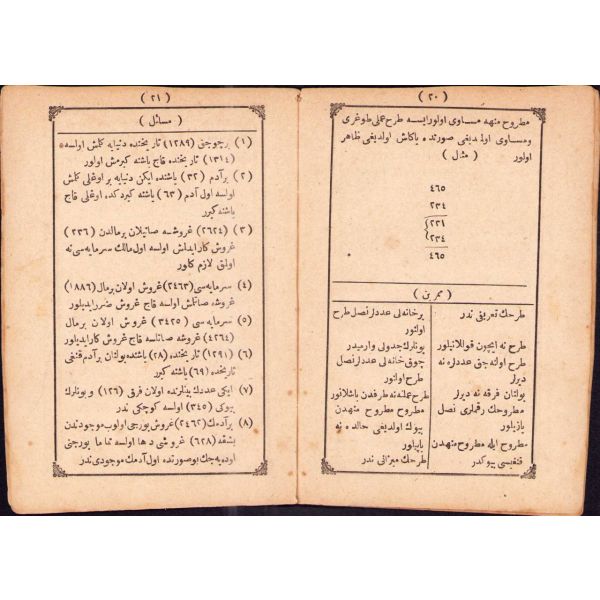 ( ٢٠ )
مطروح منهه مساوى اولورايسه طرح عملى طوغرى
ومساوى اولمديغى صورتده ياكلش اولديغى ظاهر
اولور ( مثال )
٤٦٥
٢٣٤
٢٣١
٢٣٤
٤٦٥
( تمرين )
طرحك تعريفى ندر
طرح نه ايچون قوللانيلور
طرح اولنه جق عددلره نه
ديرلر
بولنان فرقه نه ديرلر
مطروحك رقملرى نصل
يازيلور
مطروح ايله مطروح منهدن
قنغيسى بيوكدر
برخانه لى عددلر نصل طرح
اولنور
بونلرك جدولى وارميدر
چوق خانه لى عددلر نصل
طرح اولنور
طرح عمليه نه طرفدن باشلانور
مطروح مطروح منهدن
بيوك اولديغى حالده نه
ياپيلور
طرحك ميزانى ندر
( ٢١ )
( مسائل )
(١) برچوجق (١٢٨٩) تاريخنده دنيايه كلمش اولسه
(١٣١٤) تاريخنده قاچ ياشنه كيرمش اولور
(٢) برآدم (٣٢) ياشنده ايكن دنيايه بر اوغلى كلمش
اولسه اول آدم (٦٣) ياشنه كيردكده اوغلى قاچ
ياشنه كيرر
(٣) (٢٦٢٤) غروشه صاتيلان برمالدن (٢٣٦)
غروش كارايدلمش اولسه اول مالك سرمايه سى نه
اولمق لازم كلور
(٤) سرمايه سى (٢٤٦٣) غروش اولان برمال (١٨٨٦)
غروشه صاتلمش اولسه قاچ غروش ضررايديلور
(٥) سرمايه سى (٣٤٢٥) غروش اولان برمال
(٤٢٦٤) غروشه صاتلسه قاچ غروش كارايديلور
(٦) (١٢٩١) تاريخنده (٢٨) ياشنده بولنان برآدم قنغى
تاريخده (٦٩) ياشنه كيرر
(٧) ايكى عددك بيننده اولان فرق (١٢٦) و بونلرك
بيوكى (٣٤٥) اولسه كوچكى ندر
(٨) برآدمك (٢٤٦٢) غروش بورجى اولوب موجودندن
بشقه (٦٢٨) غروشى دها اولسه تماما بورجنى
اوده يه جك بوصورتده اول آدمك موجودى ندر